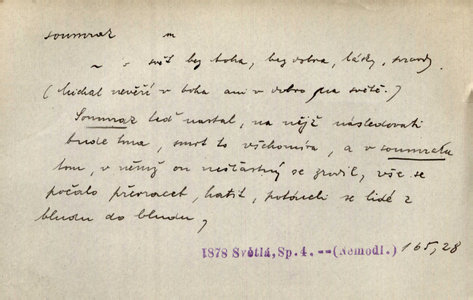 soumrak m
~ s svět bez boha, bez dobra, lásky, pravdy.
(Michal nevěří v boha ani v dobro na světě.)
Soumrak teď nastal, na nějž následovati
bude tma, smrt to všehomíra, a v soumraku
tom, v němž on nešťastný se zrodil, vše se
počalo převracet, kazit, potáceli se lidé z
bludu do bludu,
1878 Světlá, Sp. 4. --(Nemodl.) 165, 28